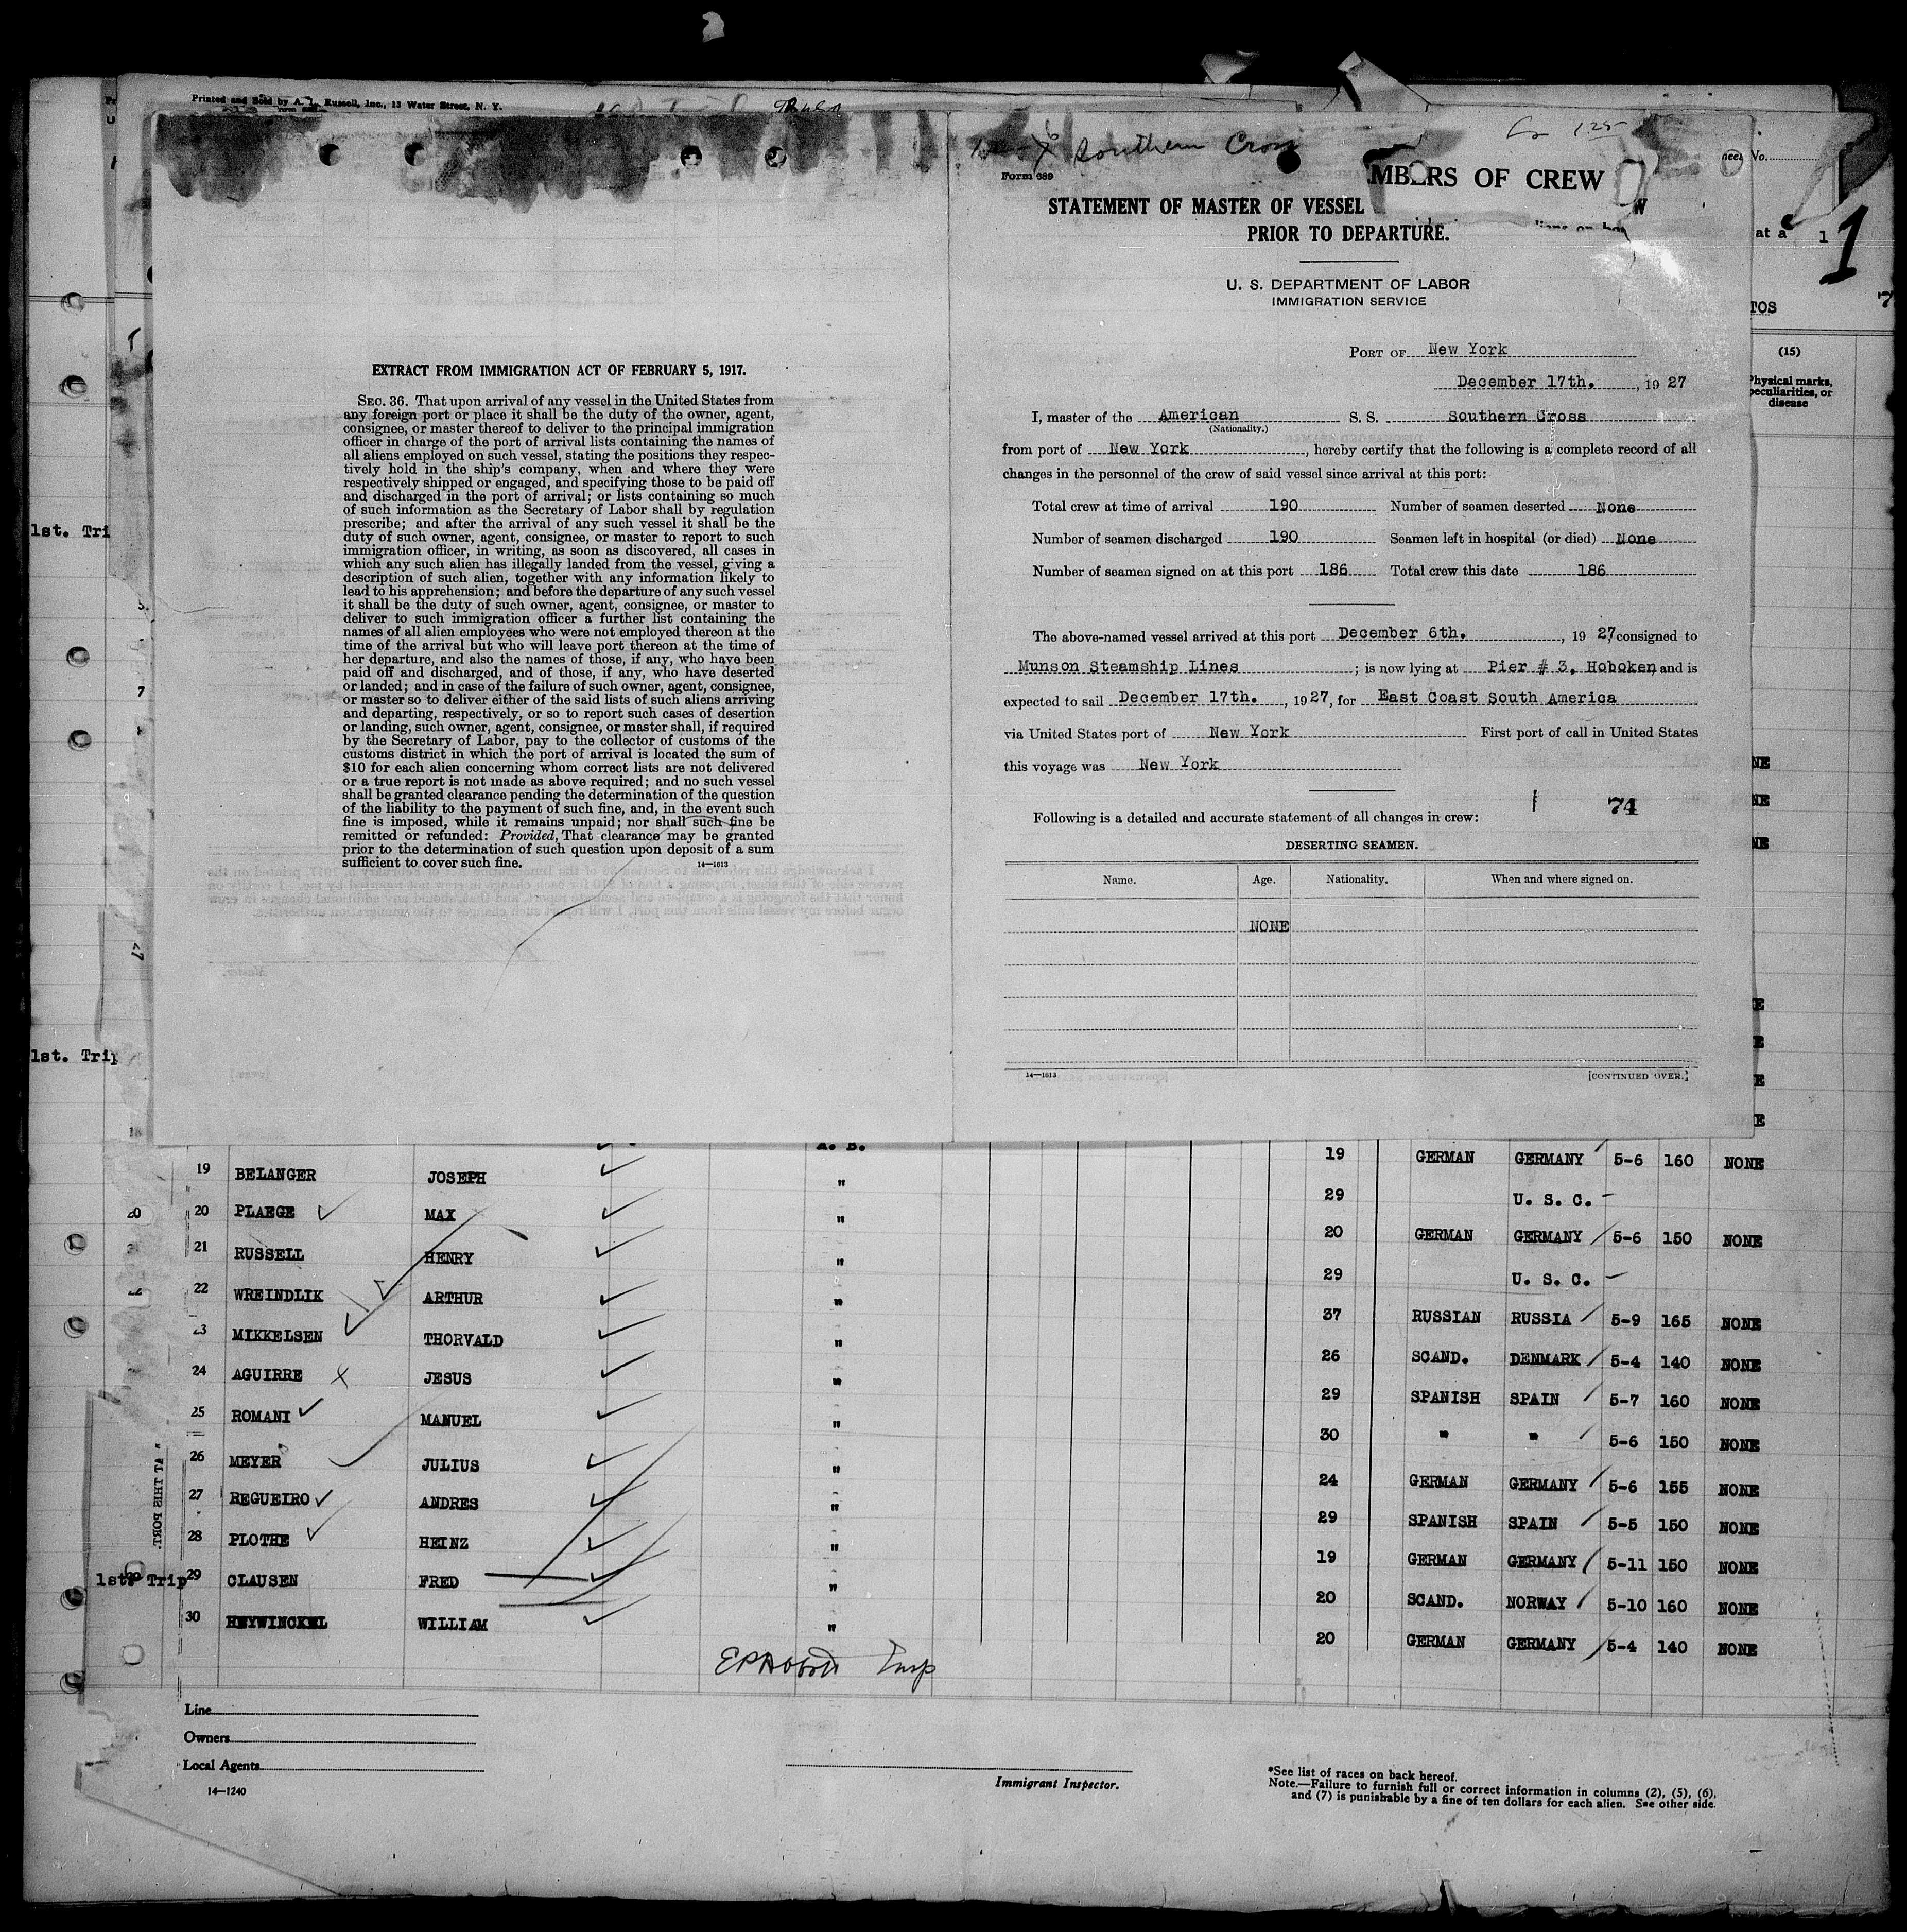 Printed and Sold by A. L. Russell, Inc., 13 Water Street, N. Y.
Southern Cross
125
Form 689
MBERS OF CREW
STATEMENT OF MASTER OF VESSEL
PRIOR TO DEPARTURE.
U. S. DEPARTMENT OF LABOR
IMMIGRATION SERVICE
PORT OF New York
December 17th., 19 27
I, master of the American S. S. Southern Cross
(Nationality.)
from port of New York, hereby certify that the following is a complete record of all
changes in the personnel of the crew of said vessel since arrival at this port:
Total crew at time of arrival 190 Number of seamen deserted None
Number of seamen discharged 190 Seamen left in hospital (or died) None
Number of seamen signed on at this port 186 Total crew this date 186
The above-named vessel arrived at this port December 6th., 19 27, consigned to
Munson Steamship Lines; is now lying at Pier # 3, Hoboken, and is
expected to sail December 17th., 19 27, for East Coast South America
via United States port of New York First port of call in United States
this voyage was New York
74
Following is a detailed and accurate statement of all changes in crew:
DESERTING SEAMEN.
Name. Age. Nationality. When and where signed on.
NONE
14—1613 [CONTINUED OVER.]
EXTRACT FROM IMMIGRATION ACT OF FEBRUARY 5, 1917.
SEC. 36. That upon arrival of any vessel in the United States from
any foreign port or place it shall be the duty of the owner, agent,
consignee, or master thereof to deliver to the principal immigration
officer in charge of the port of arrival lists containing the names of
all aliens employed on such vessel, stating the positions they respec-
tively hold in the ship's company, when and where they were
respectively shipped or engaged, and specifying those to be paid off
and discharged in the port of arrival; or lists containing so much
of such information as the Secretary of Labor shall by regulation
prescribe; and after the arrival of any such vessel it shall be the
duty of such owner, agent, consignee, or master to report to such
immigration officer, in writing, as soon as discovered, all cases in
which any such alien has illegally landed from the vessel, giving a
description of such alien, together with any information likely to
lead to his apprehension; and before the departure of any such vessel
it shall be the duty of such owner, agent, consignee, or master to
deliver to such immigration officer a further list containing the
names of all alien employees who were not employed thereon at the
time of the arrival but who will leave port thereon at the time of
her departure, and also the names of those, if any, who have been
paid off and discharged, and of those, if any, who have deserted
or landed; and in case of the failure of such owner, agent, consignee,
or master so to deliver either of the said lists of such aliens arriving
and departing, respectively, or so to report such cases of desertion
or landing, such owner, agent, consignee, or master shall, if required
by the Secretary of Labor, pay to the collector of customs of the
customs district in which the port of arrival is located the sum of
$10 for each alien concerning whom correct lists are not delivered
or a true report is not made as above required; and no such vessel
shall be granted clearance pending the determination of the question
of the liability to the payment of such fine, and, in the event such
fine is imposed, while it remains unpaid; nor shall such fine be
remitted or refunded: Provided, That clearance may be granted
prior to the determination of such question upon deposit of a sum
sufficient to cover such fine. 14—1613
No.
at a 1
1
TOS
(15)
Physical marks,
peculiarities, or
disease
1st. Tri
1st. Trip
A. B. 19 GERMAN GERMANY 5-6 160 NONE
19 BELANGER JOSEPH " 29 U. S. C.
20 PLAEGE MAX " 20 GERMAN GERMANY 5-6 150 NONE
21 RUSSELL HENRY " 29 U. S. C.
22 WREINDLIK ARTHUR " 37 RUSSIAN RUSSIA 5-9 165 NONE
23 MIKKELSEN THORVALD " 26 SCAND. DENMARK 5-4 140 NONE
24 AGUIRRE JESUS " 29 SPANISH SPAIN 5-7 160 NONE
25 ROMANI MANUEL " 30 " " 5-6 150 NONE
26 MEYER JULIUS " 24 GERMAN GERMANY 5-6 155 NONE
27 REGUEIRO ANDRES " 29 SPANISH SPAIN 5-5 150 NONE
28 PLOTHE HEINZ " 19 GERMAN GERMANY 5-11 150 NONE
1st. Trip 29 CLAUSEN FRED " 20 SCAND. NORWAY 5-10 160 NONE
30 HEYWINCKEL WILLIAM " 20 GERMAN GERMANY 5-4 140 NONE
Insp
Line
Owners
Local Agents
14—1240
Immigrant Inspector.
*See list of races on back hereof.
Note.—Failure to furnish full or correct information in columns (2), (5), (6),
and (7) is punishable by a fine of ten dollars for each alien. See other side.